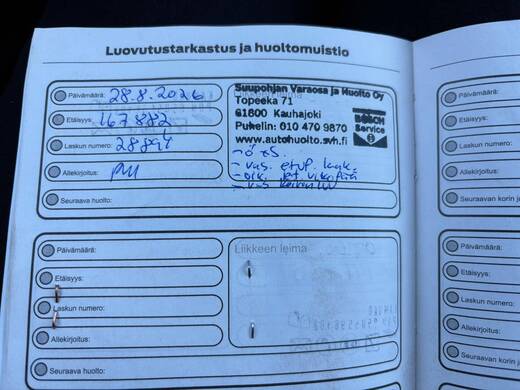 Luovutustarkastus ja huoltomuistio
Päivämäärä: 28.8.2026
Etäisyys: 167882
Laskun numero:
Allekirjoitus:
Seuraava huolto:
Suupohjan Varaosa ja Huolto Oy
Topeeka 71
61800 Kauhajoki
Puhelin: 010 470 9870
www.autohuolto.svh.fi
BOSCH
Service
- vas. etup.
Päivämäärä:
Etäisyys:
Laskun numero:
Allekirjoitus:
Seuraava huolto:
Liikkeen leima
Päivämäärä:
Etäisyys:
Laskun
Allekirjoitus:
Seuraavan korin
Päivämäärä:
Etäisyys:
Laskun
Allekirjoitus:
Seuraavan korin